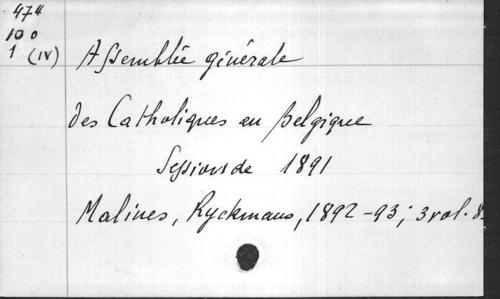 474
10 0
1 (IV)
Assemblée générale
des Catholiques en Belgique
Session de 1891
Malines, Ryckmans, 1892-93; 3 vol. 8